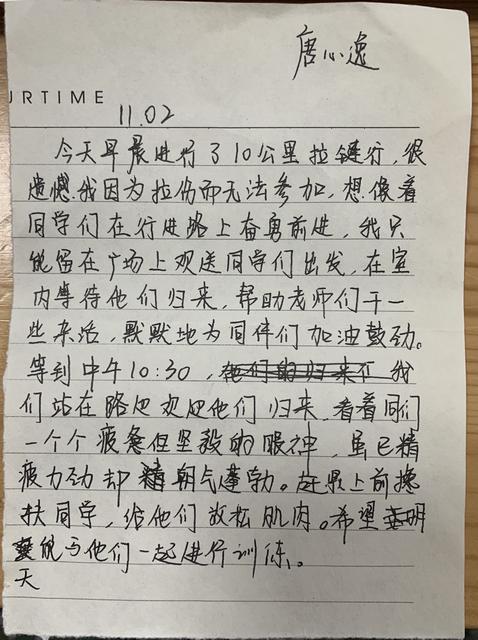 唐心逸
URTIME
11.02
今天早晨进行了10公里拉练行,很
遗憾我因为拉伤而无法参加,想像着
同学们在行进路上奋勇前进,我只
能留在广场上观送同学们出发,在室
内等待他们归来,帮助老师们干一
些杂活,默默地为同伴们加油鼓劲。
等到中午10:30,他们的归来们我
们站在路边欢迎他们归来,看着同们
一个个疲惫但坚毅的眼神,虽已精
疲力劲却精朝气蓬勃。赶忙上前搀
扶同学,给他们放松肌肉。希望明
能与他们一起进行训练。
天